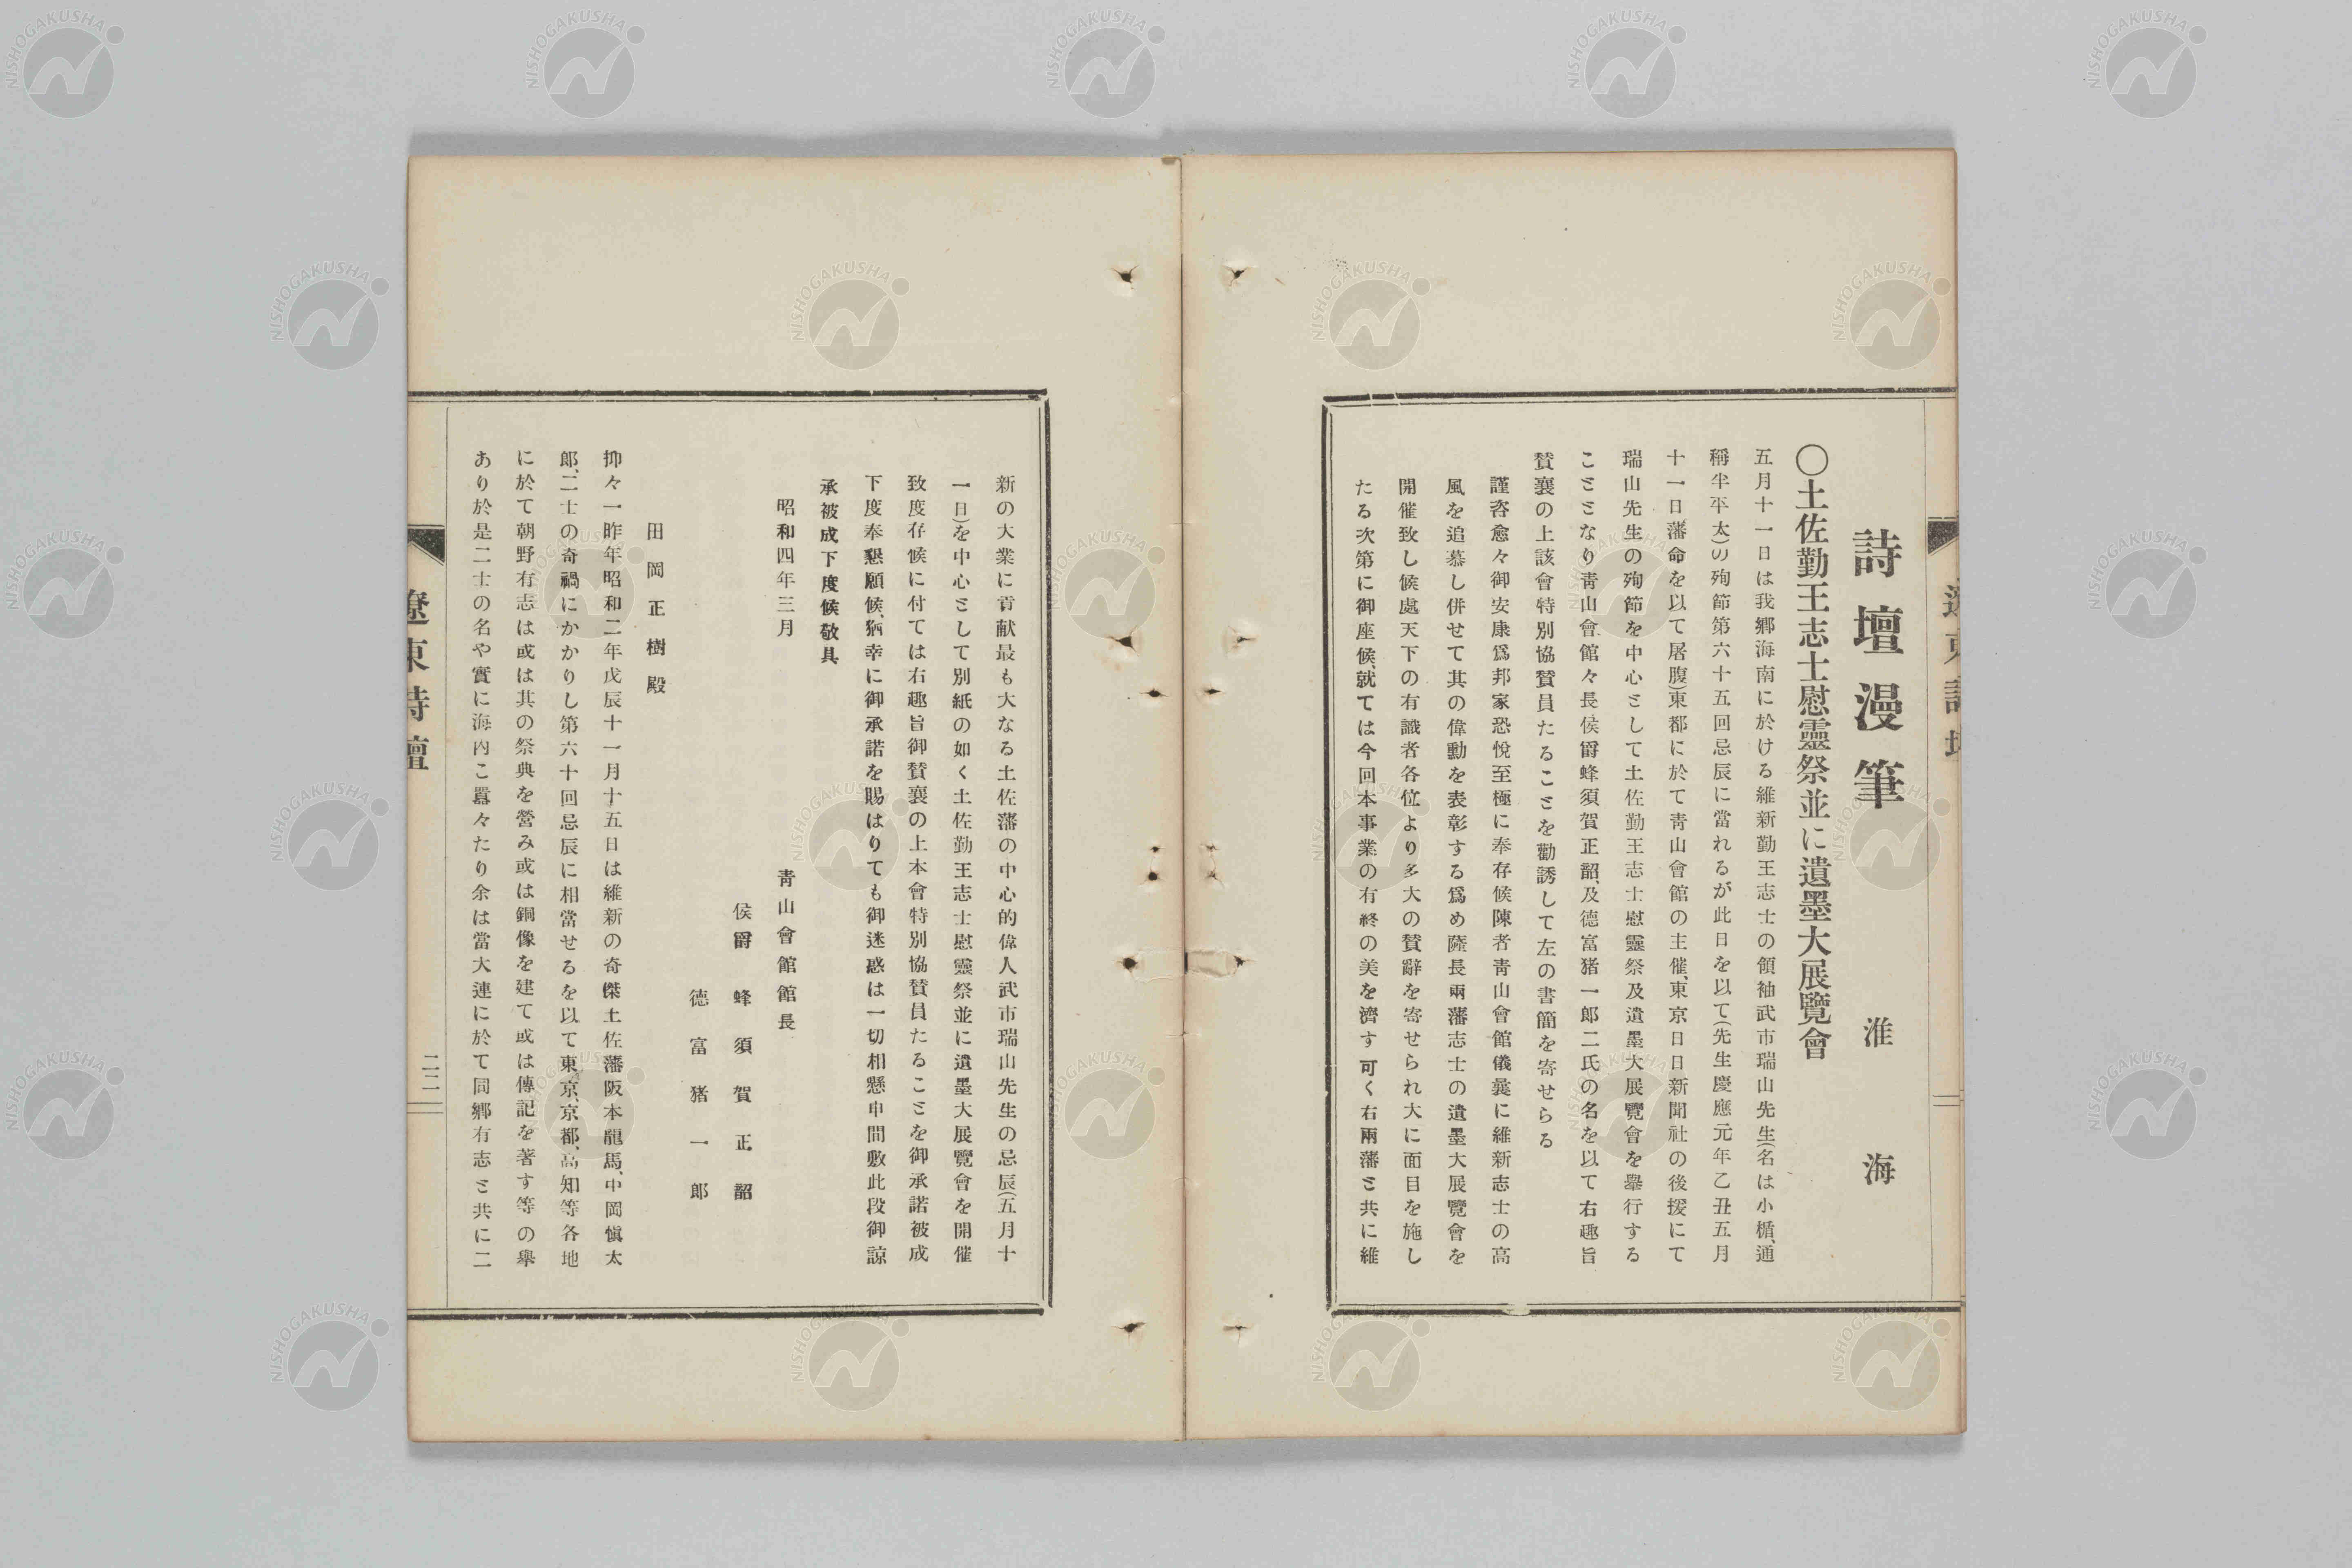 詩壇漫筆
淮海
〇土佐勤王志士慰靈祭並に遺墨大展覽會
五月十一日は我郷海南に於ける維新勤王志士の領袖武市瑞山先生(名は小楯、通
稱半平太)の殉節第六十五回忌辰に當れるが此日を以て(先生慶應元年乙丑五月
十一日藩命を以て屠腹)東都に於て靑山會館の主催、東京日日新聞社の後援にて
瑞山先生の殉節を中心として土佐勤王志士慰靈祭及遺墨大展覽會を擧行する
こととなり靑山會館々長侯爵蜂須賀正韶、及德富猪一郎二氏の名を以て右趣旨
賛襄の上該會特別協賛員たることを勸誘して左の書簡を寄せらる
謹啓愈々御安康爲邦家恐悅至極に奉存候陳者靑山會館儀曩に維新志士の高
風を追慕し併せて其の偉勳を表彰する爲め薩長兩藩志士の遺墨大展覽會を
開催致し候處天下の有識者各位より多大の賛辭を寄せられ大に面目を施し
たる次第に御座候、就ては今回本事業の有終の美を濟す可く右兩藩と共に維
新の大業に貢献最も大なる土佐藩の中心的偉人武市瑞山先生の忌辰(五月十
一日)を中心として別紙の如く土佐勤王志士慰靈祭並に遺墨大展覽會を開催
致度存候に付ては右趣旨御賛襄の上本會特別協賛員たることを御承諾被成
下度奉懇願候、猶幸に御承諾を賜はりても御迷惑は一切相懸申間敷此段御諒
承被成下度候敬具
昭和四年三月
靑山會館館長
侯爵 蜂須賀正韶
德富猪一郎
田岡正樹殿
抑々一昨年昭和二年戊辰十一月十五日は維新の奇傑土佐藩阪本龍馬、中岡愼太
郎、二士の奇禍にかかりし第六十回忌辰に相當せるを以て東京、京都、高知等各地
に於て朝野有志は或は其の祭典を營み或は銅像を建て或は傳記を著す等の擧
あり於是二士の名や實に海內に囂々たり余は當大連に於て同鄕有志と共に二
遼東詩壇
二二